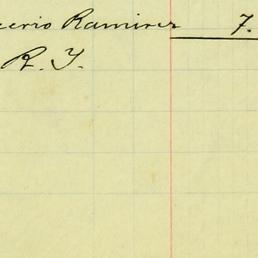 cerio Ramirez 7.
R. Y.